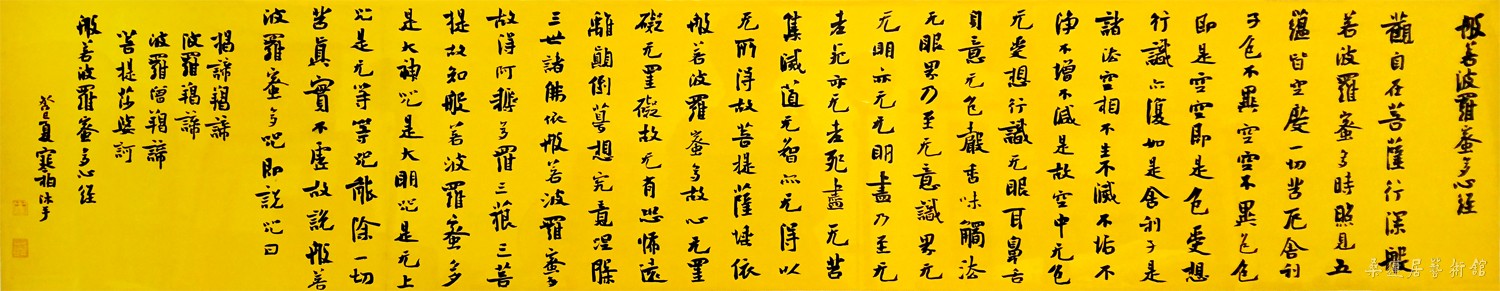 般若波羅蜜多心经
觀自在菩薩行深般
若波羅蜜多時照見五
蘊皆空度一切苦厄舍利
子色不異空空不異色色
即是空空即是色受想
行識亦復如是舍利子是
諸法空相不生不滅不垢不
净不增不减是故空中无色
无受想行識无眼耳鼻舌
身意无色聲香味觸法
无眼界乃至无意識界无
无明亦无无明盡乃至无
老死亦无老死盡无苦
集滅道无智亦无得以
无所得故菩提薩埵依
般若波羅蜜多故心无罣
礙无罣礙故无有恐怖遠
離顛倒夢想究竟涅槃
三世諸佛依般若波羅蜜多
故得阿耨多羅三藐三菩
提故知般若波羅蜜多
是大神咒是大明咒是无上
咒是无等等咒能除一切
苦真實不虛故説般若
波羅蜜多咒即説咒曰
揭諦羯諦
波羅羯諦
波羅僧羯諦
菩提莎婆訶
般若波羅蜜多心经
癸巳夏寒柏沐手
桑蓮居藝術館